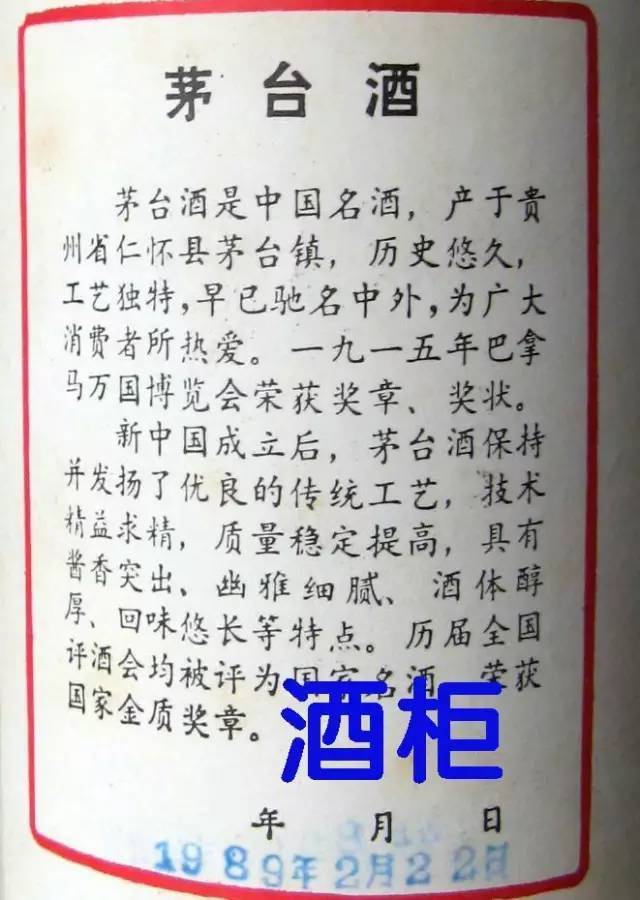 茅台酒
茅台酒是中国名酒，产于贵
州省仁怀县茅台镇，历史悠久，
工艺独特，早已驰名中外，为广大
消费者所热爱。一九一五年巴拿
马万国博览会荣获奖章、奖状。
新中国成立后，茅台酒保持
并发扬了优良的传统工艺，技术
精益求精，质量稳定提高，具有
酱香突出、幽雅细腻、酒体醇
厚、回味悠长等特点。历届全国
评酒会均被评为国家名酒 荣获
国家金质奖章。
酒柜
年 月 日
1989年2月22日